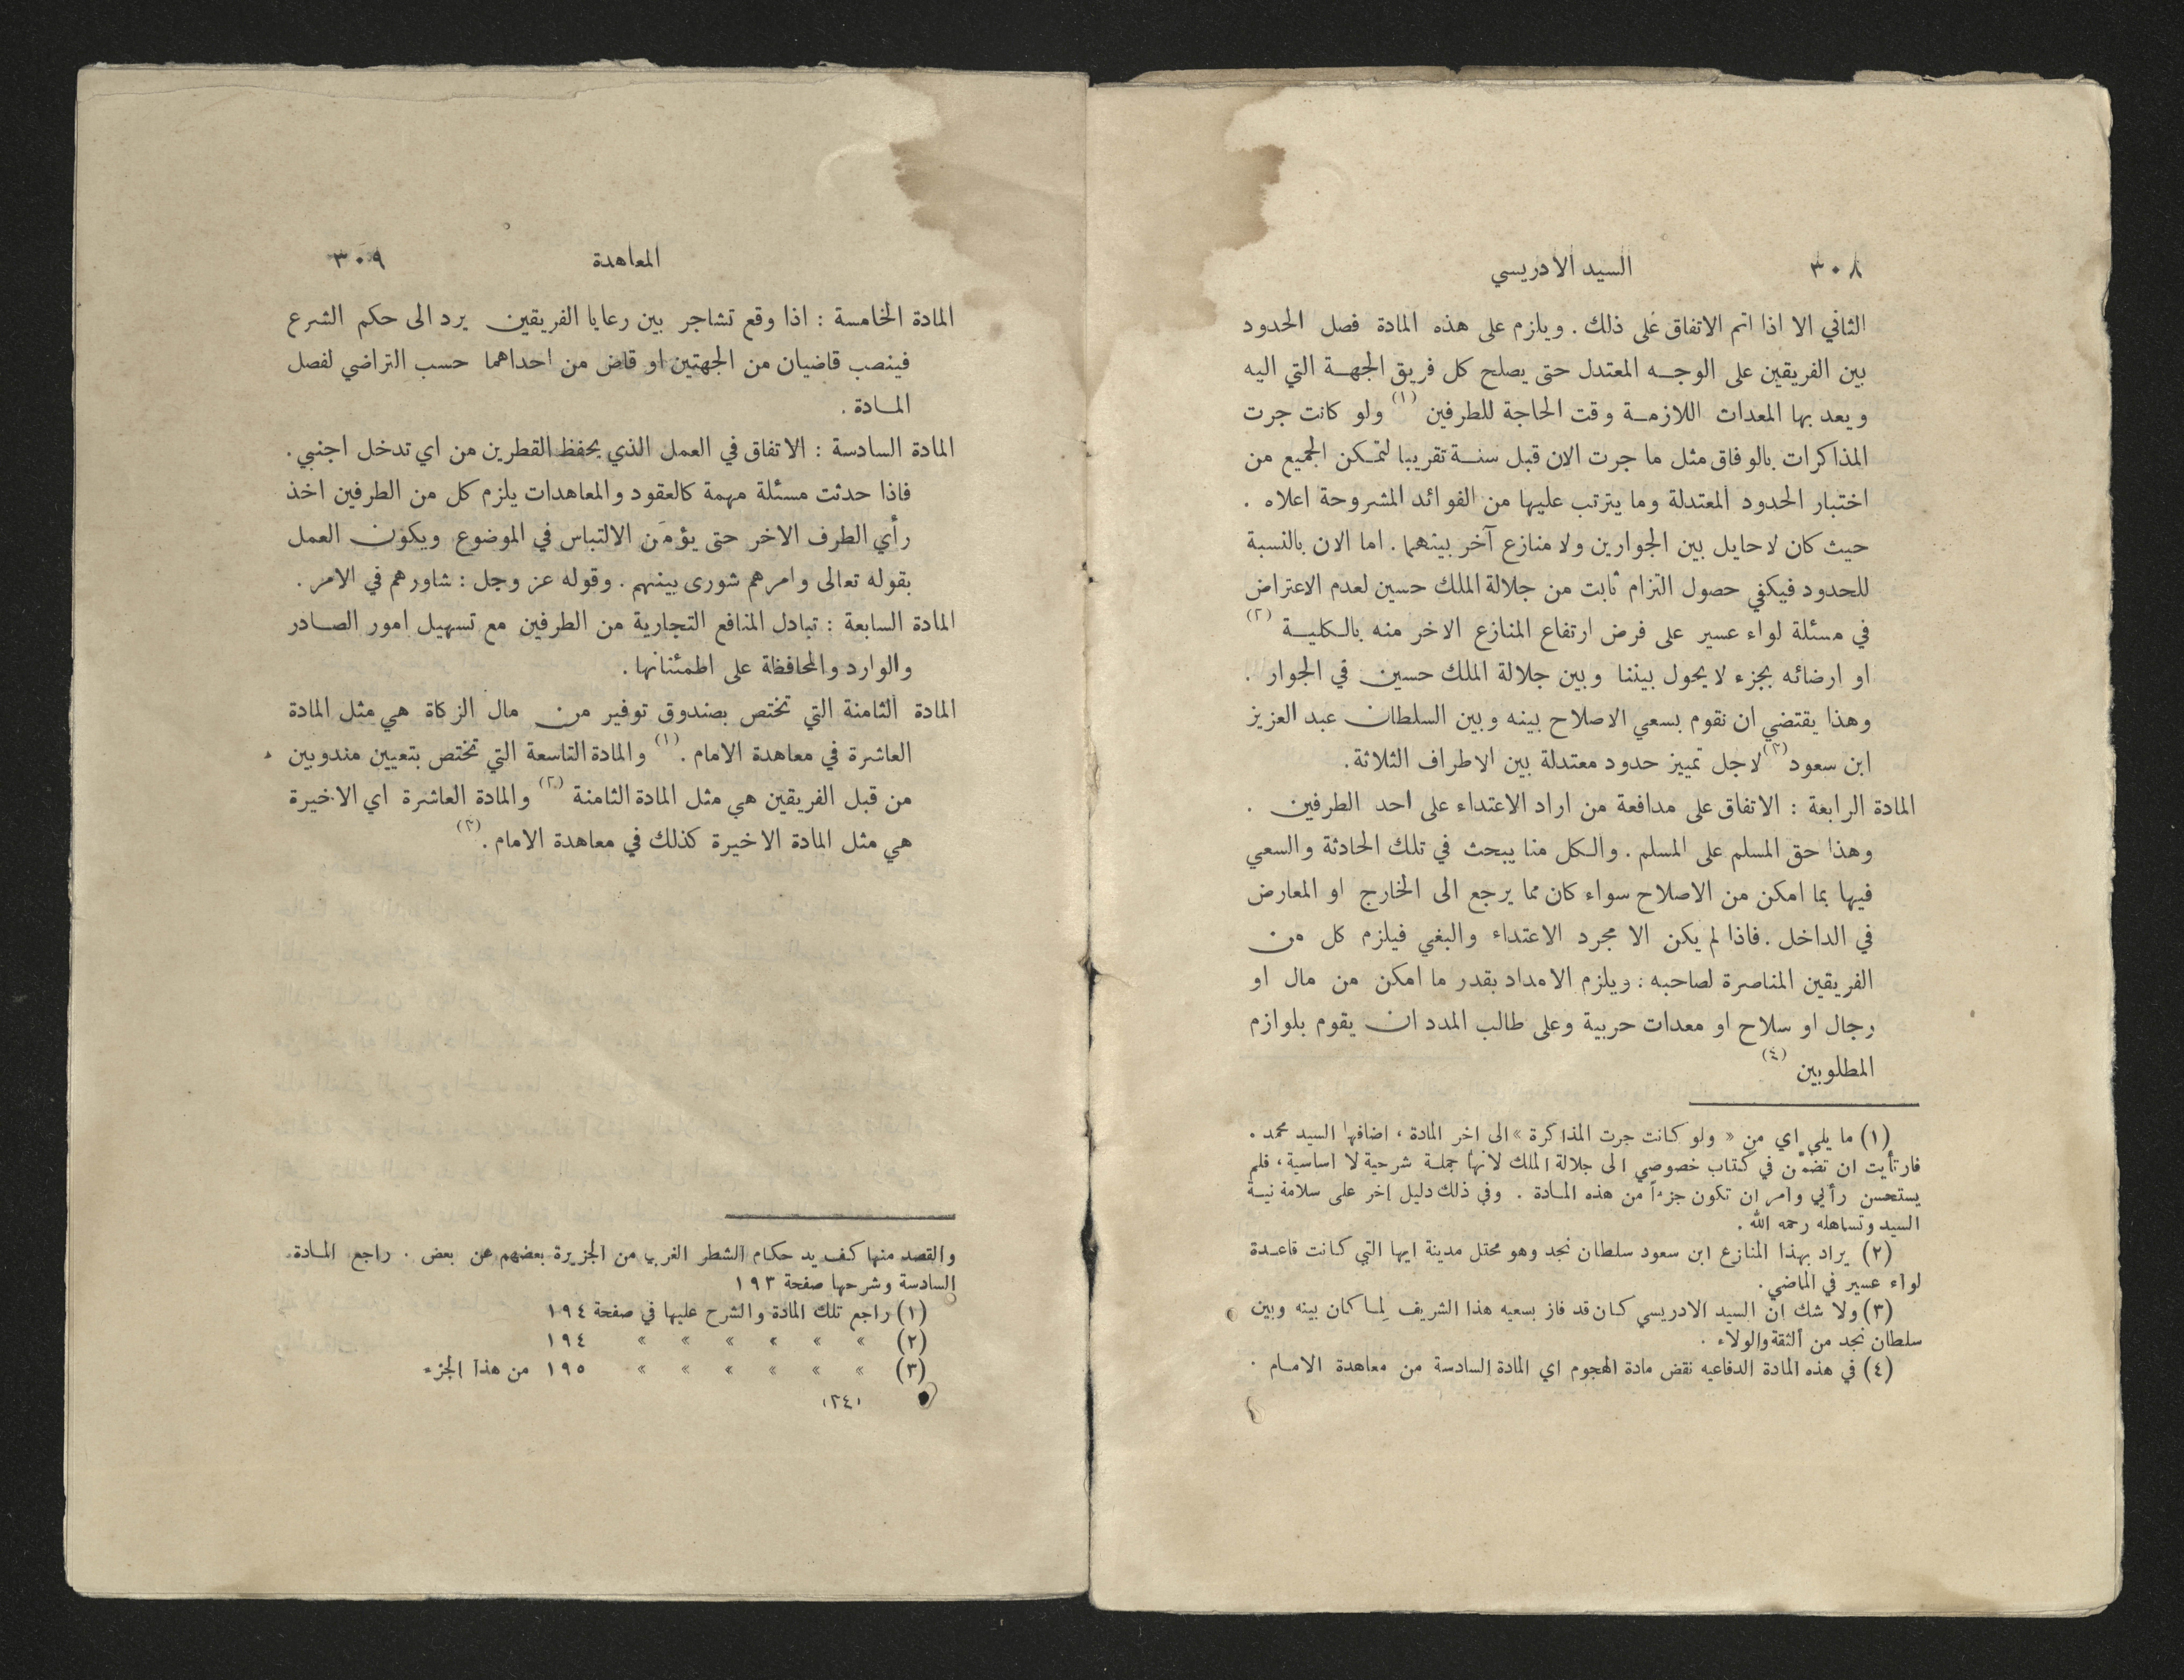 ٣٠٨ السيد الادريسي
الثاني الا اذا اتم الاتفاق على ذلك . ويلزم على هذه المادة فصل الحدود
بين الفريقين على الوجه المعتدل حتى يصلح كل فريق الجهة التي اليه
ويعد بها المعدات اللازمة وقت الحاجة للطرفين (١) ولو كانت جرت
المذاكرات بالوفاق مثل ما جرت الان قبل سنة تقريبا لتمكن الجميع من
اختبار الحدود المعتدلة وما يترتب عليها من الفوائد المشروحة اعلاه .
حيث كان لا حايل بين الجوارين ولا منازع آخر بينهما . اما الان بالنسبة
للحدود فيكفي حصول التزام ثابت من جلالة الملك حسين لعدم الاعتراض
في مسئلة لواء عسير على فرض ارتفاع المنازع الاخر منه بالكلية (٢)
او ارضائه بجزء لا يحول بيننا وبين جلالة الملك حسين في الجوار .
وهذا يقتضي ان نقوم بسعي الاصلاح بينه وبين السلطان عبد العزيز
ابن سعود (٣) لاجل تمييز حدود معتدلة بين الاطراف الثلاثة .
المادة الرابعة : الاتفاق على مدافعة من اراد الاعتداء على احد الطرفين .
وهذا حق المسلم على المسلم . والكل منا يبحث في تلك الحادثة والسعي
فيها بما امكن من الاصلاح سواء كان مما يرجع الى الخارج او المعارض
في الداخل . فاذا لم يكن الا مجرد الاعتداء والبغي فيلزم كل من
الفريقين المناصرة لصاحبه : ويلزم الامداد بقدر ما امكن من مال او
رجال او سلاح او معدات حربية وعلى طالب المدد ان يقوم بلوازم
المطلوبين (٤)
(١) ما يلي اي من « ولو كانت جرت المذاكرة » الى اخر المادة ، اضافها السيد محمد .
فارتأيت ان تضمَّن في كتاب خصوصي الى جلالة الملك لانها جملة شرحية لا اساسية ، فلم
يستحسن رأيي وامر ان تكون جزءاً من هذه المادة . وفي ذلك دليل اخر على سلامة نية
السيد وتساهله رحمه الله .
(٢) يراد بهذا المنازع ابن سعود سلطان نجد وهو محتل مدينة ابها التي كانت قاعدة
لواء عسير في الماضي .
(٣) ولا شك ان السيد الادريسي كان قد فاز بسعيه هذا الشريف لِما كان بينه وبين
سلطان نجد من الثقة والولاء .
(٤) في هذه المادة الدفاعيه نقض مادة الهجوم اي المادة السادسة من معاهدة الامام .
المعاهدة ٣٠٩
المادة الخامسة : اذا وقع تشاجر بين رعايا الفريقين يرد الى حكم الشرع
فينصب قاضيان من الجهتين او قاض من احداهما حسب التراضي لفصل
المادة .
المادة السادسة : الاتفاق في العمل الذي يحفظ القطرين من اي تدخل اجنبي .
فاذا حدثت مسئلة مهمة كالعقود والمعاهدات يلزم كل من الطرفين اخذ
رأي الطرف الاخر حتى يؤمَن الالتباس في الموضوع ويكون العمل
بقوله تعالى وامرهم شورى بينهم . وقوله عز وجل : شاورهم في الامر .
المادة السابعة : تبادل المنافع التجارية من الطرفين مع تسهيل امور الصادر
والوارد والمحافظة على اطمئنانها .
المادة الثامنة التي تختص بصندوق توفير من مال الزكاة هي مثل المادة
العاشرة في معاهدة الامام . (١) والمادة التاسعة التي تختص بتعيين مندوبين
من قبل الفريقين هي مثل المادة الثامنة (٢) والمادة العاشرة اي الاخيرة
هي مثل المادة الاخيرة كذلك في معاهدة الامام . (٣)
والقصد منها كف يد حكام الشطر الغربي من الجزيرة بعضهم عن بعض . راجع المادة
السادسة وشرحها صفحة ١٩٣
(١) راجع تلك المادة والشرح عليها في صفحة ١٩٤
(٢) » » » » » » ١٩٤
(٣) » » » » » » ١٩٥ من هذا الجزء
(٢٤)